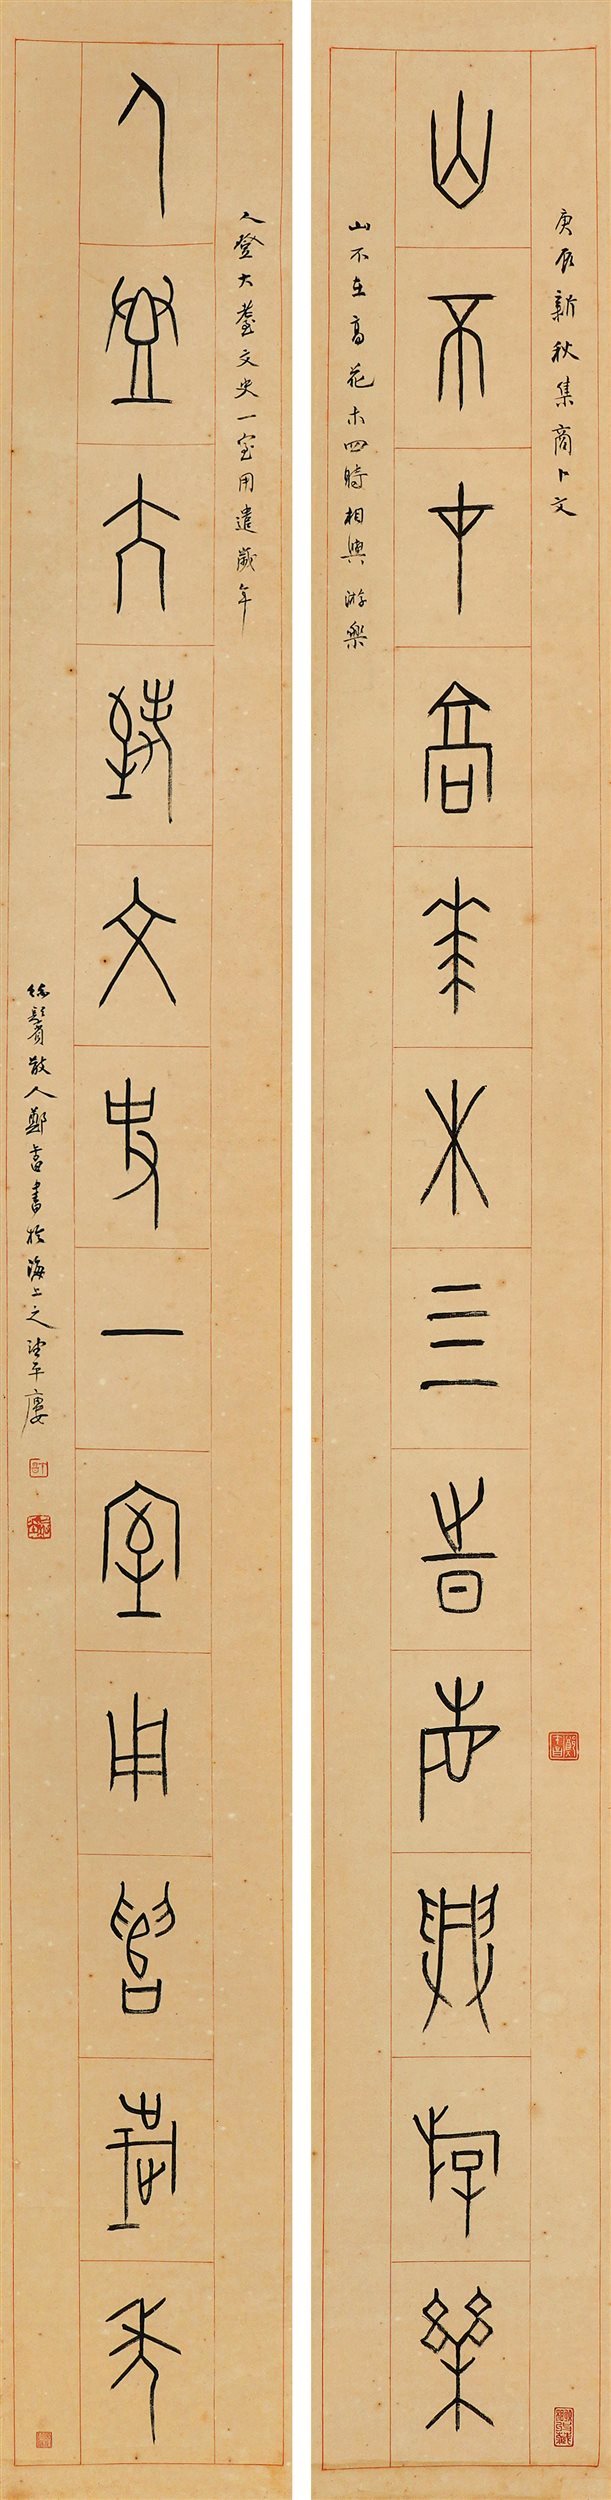 庚辰新秋集商卜文
山不在高花木四時相與游樂
山不在高花木四時相與游樂
人登大耋文史一室用遣歲年
人登大耋文史一室用遣歲年
散人鄭 書於海上之 平廔